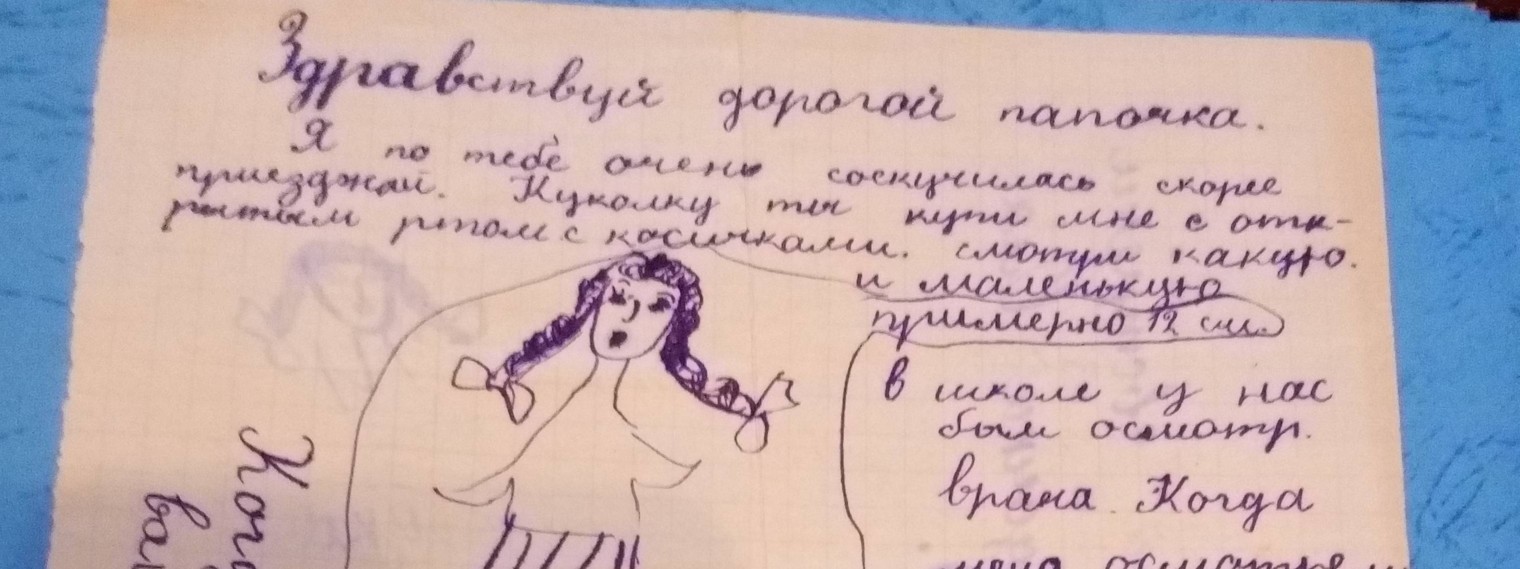 Здравствуй дорогой папочка.
Я по тебе очень соскучилась скорее
приезджай. Куколку ты купи мне с отк-
рытым ртом с косичками. смотри какую.
и маленькую
примерно 12 см.
в школе у нас
был осмотр.
врача. Когда
меня
Ког
ва